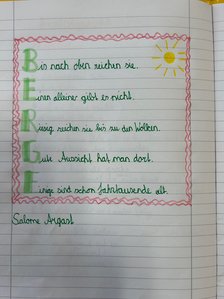 Bis nach oben reichen sie.
Einen alleine gibt es nicht.
Riesig reichen sie bis zu den Wolken.
Gute Aussicht hat man dort.
Einige sind schon Jahrtausende alt.
Salome Argast